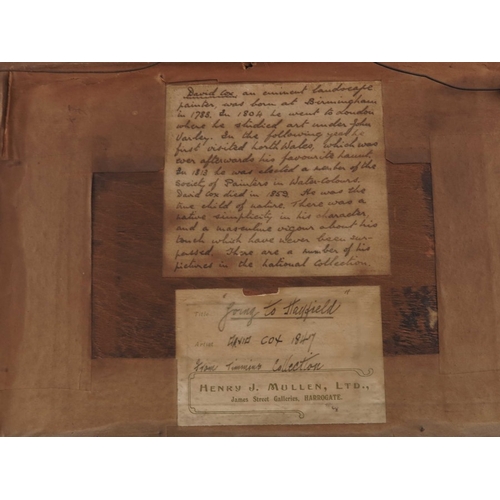 David Cox, an eminent landscape
painter, was born at Birmingham
in 1783. In 1804 he went to London
where he studied art under John
Varley. In the following year he
first visited North Wales, which was
ever afterwards his favourite haunt.
In 1813 he was elected a member of the
Society of Painters in Water-colours.
David Cox died in 1859. He was the
true child of nature. There was a
native simplicity in his character,
and a masculine vigour about his
touch which have never been sur-
passed. There are a number of his
pictures in the national collection.
TITLE "Going to Hayfield"
David Cox 1847
From Collection
HENRY J. MULLEN, LTD.,
James Street Galleries, HARROGATE.